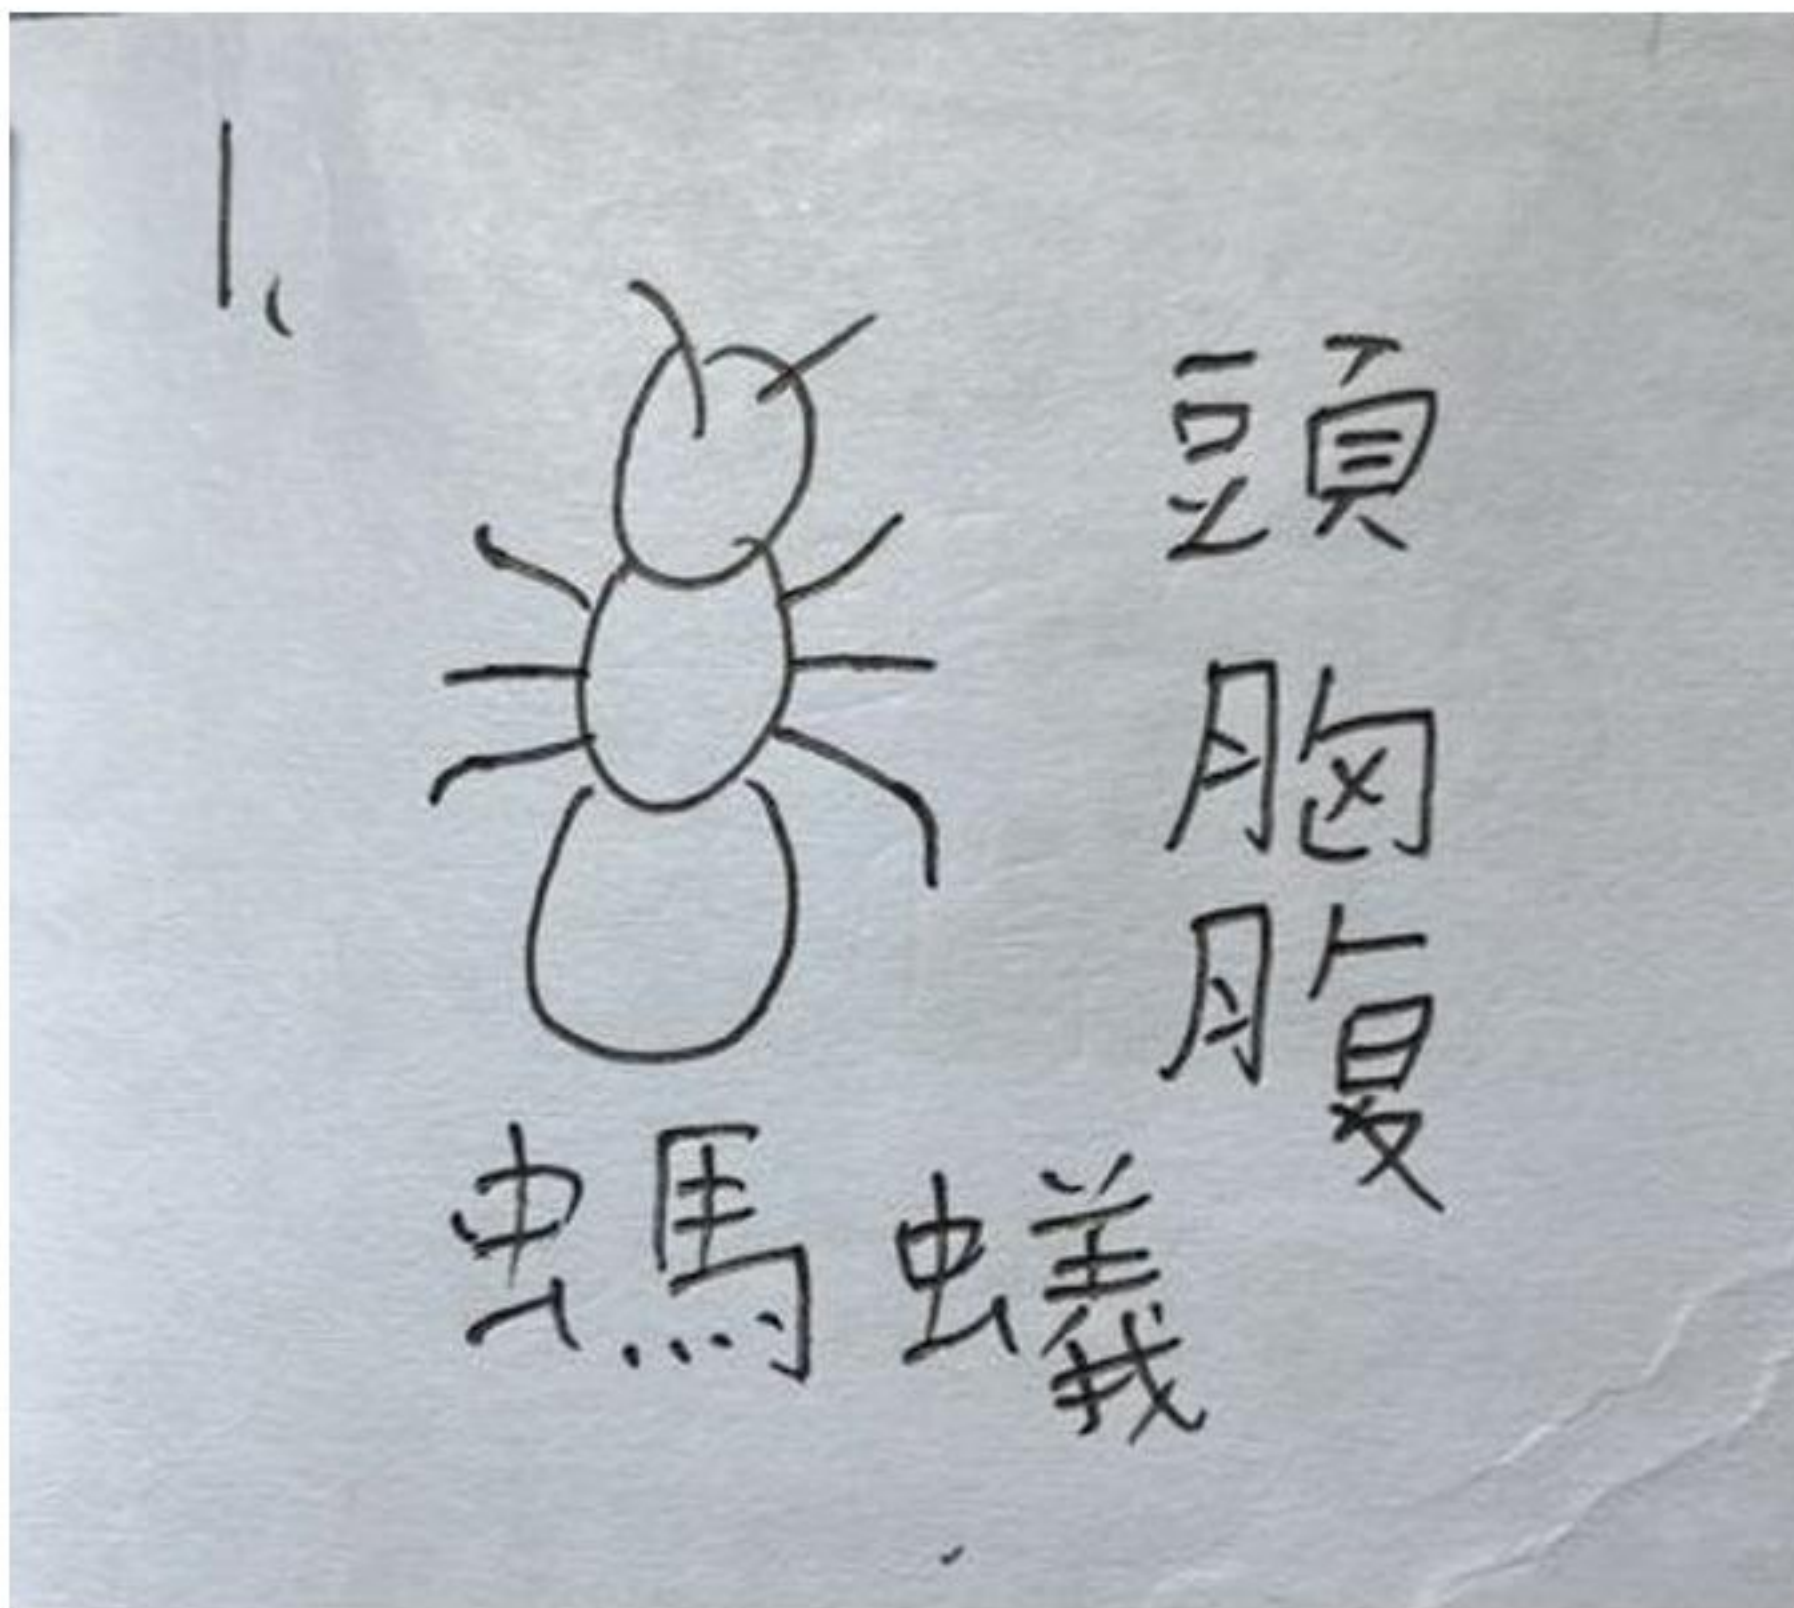 1、
頭
胸
腹
螞蟻